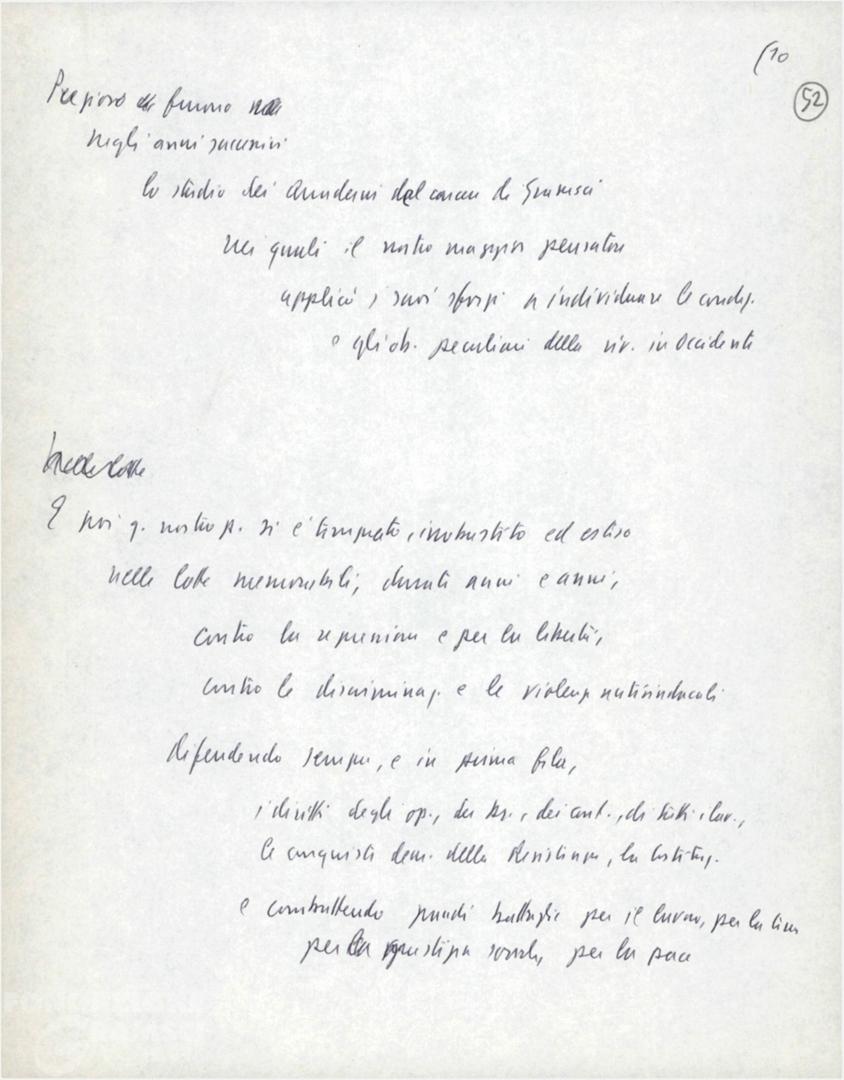 (10
52
Prezioso fu
negli anni successivi
lo studio dei Quaderni dal carcere di Gramsci
nei quali il nostro maggior pensatore
applicò i suoi sforzi a individuare le condiz.
e gli ob. peculiari della riv. in Occidente
nelle lotte
E poi q. nostro p. si è temprato, irrobustito ed esteso
nelle lotte memorabili, durate anni e anni,
contro la repressione e per la libertà,
contro le discriminaz. e le violenze antisindacali
difendendo sempre, e in prima fila,
i diritti degli op., dei br., dei cont., di tutti i lav.,
le conquiste dem. della Resistenza, la Costituz.
e combattendo grandi battaglie per il lavoro, per la terra
per la giustizia sociale, per la pace